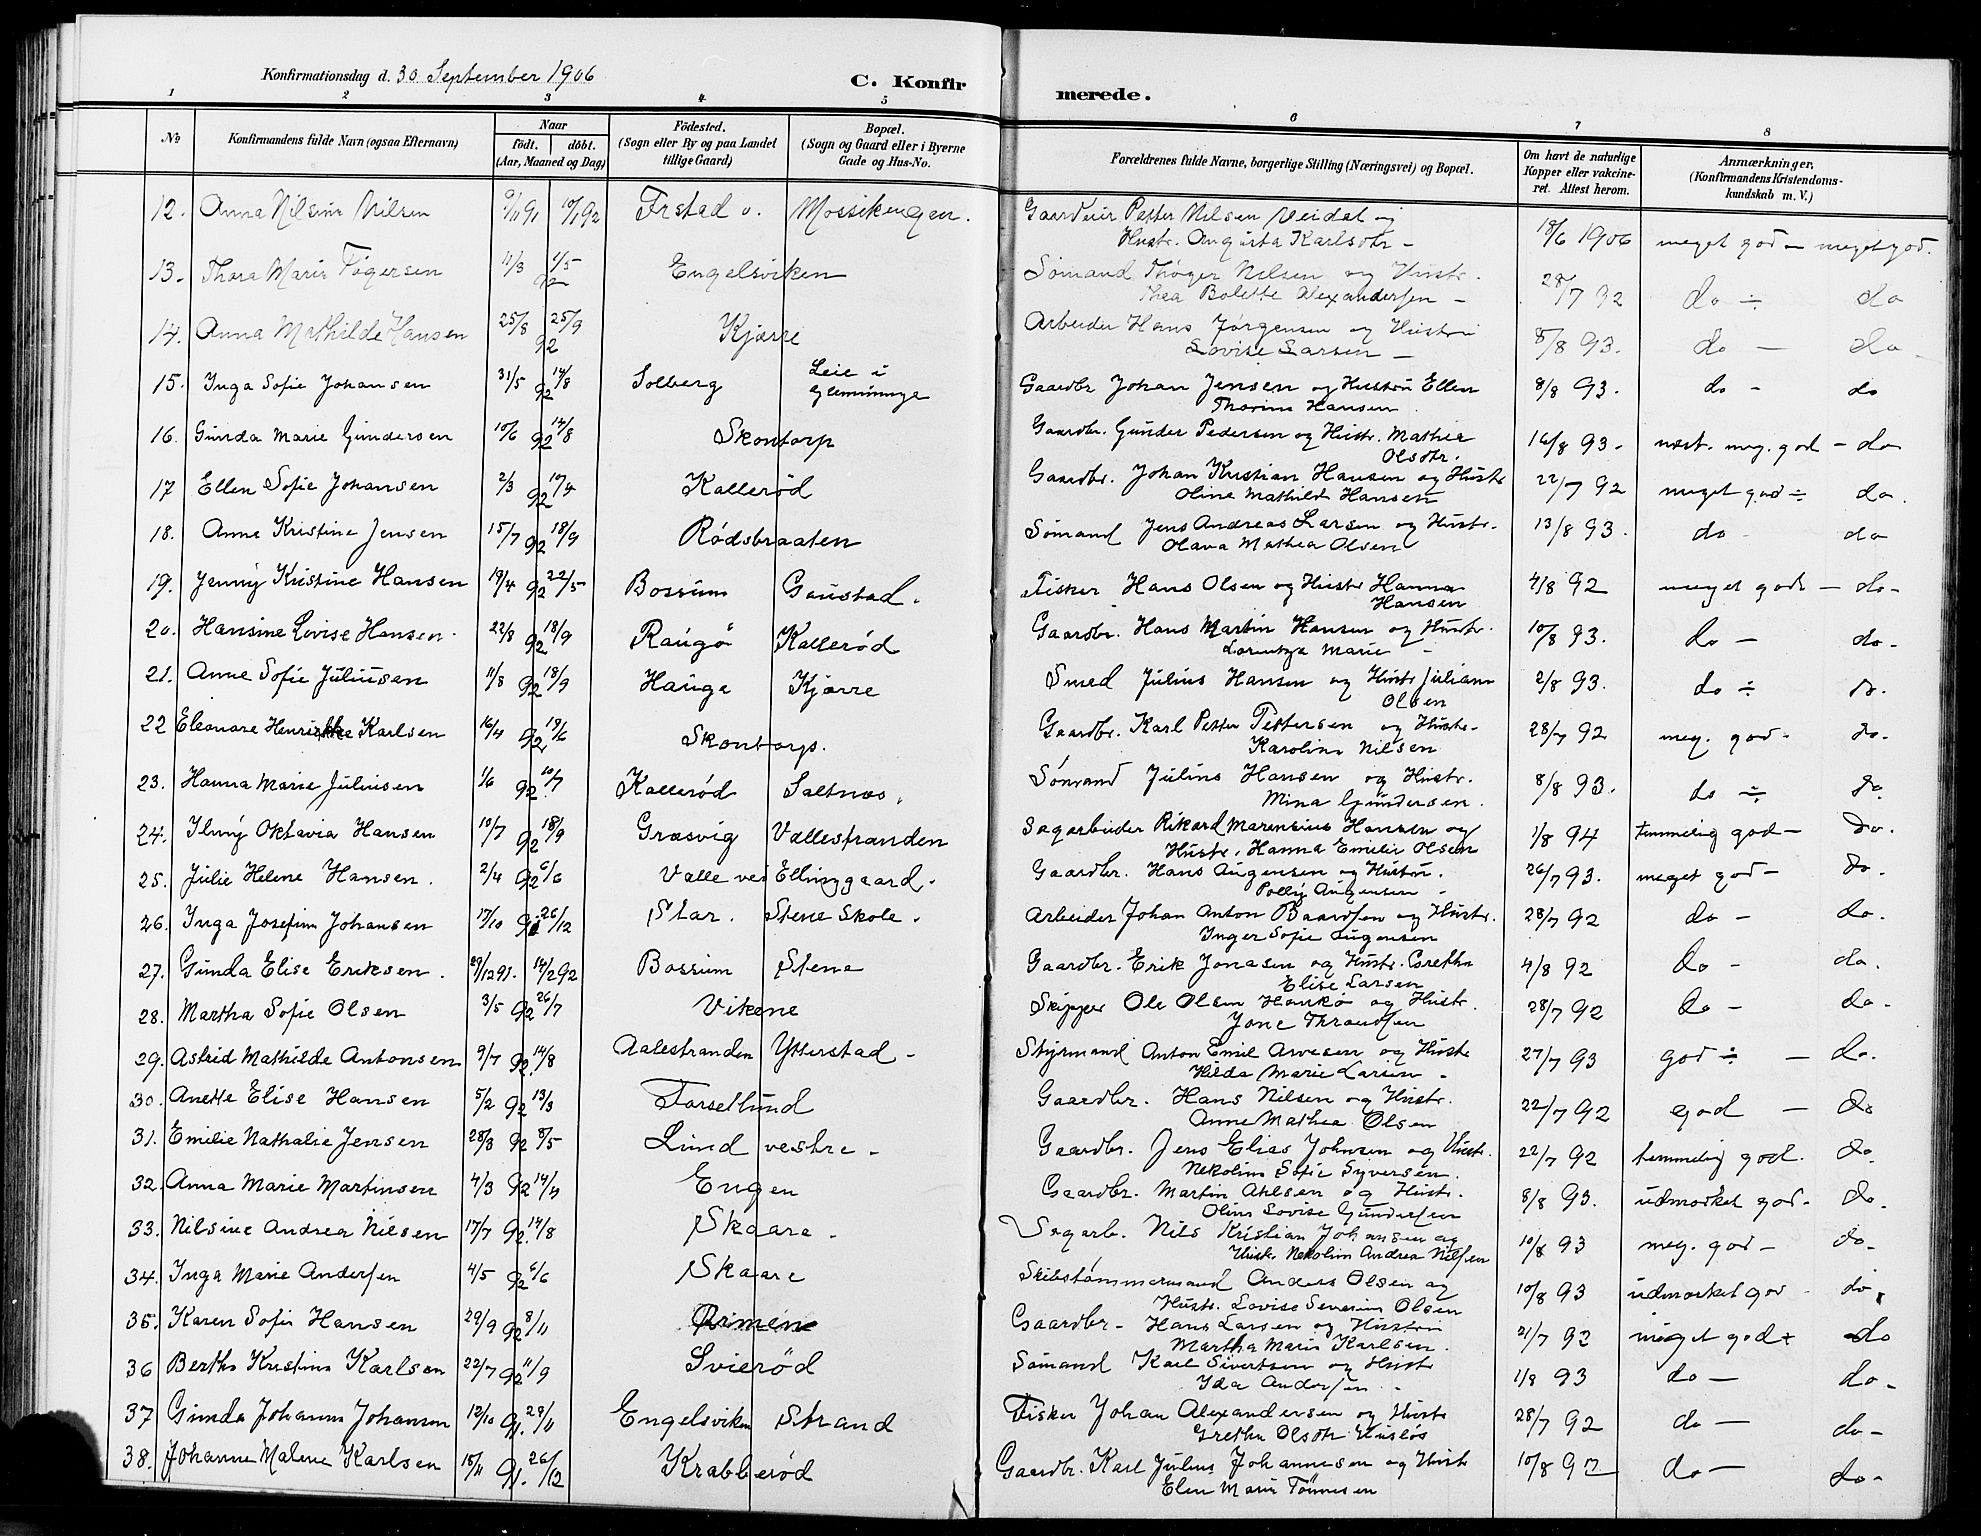 Konfirmationsdag d. 30 September 1906
C. Konfirmerede.
1 2 3 4 5 6 7 8
No Konfirmandens fulde Navn (ogsaa Efternavn) Naar födt. döbt. (Aar, Maaned og Dag) Födested. (Sogn eller By og paa Landet tillige Gaard) Bopæl. (Sogn og Gaard eller i Byerne Gade og Hus-No. Forældrenes fulde Navne, borgerlige Stilling (Næringsvei) og Bopæl. Om havt de naturlige Kopper eller vakcineret. Attest herom. Anmærkninger. (Konfirmandens Kristendomskundskab m. V.)
12. Anna Nilsine Nilsen 9/11 91 10/1 92 Frstad o. Mossikengen. Gaardeier Petter Nilsen Veidal og 18/6 1906 meget god - meget god.
Hustr. Augusta Karlsdtr -
13. Thora Marie Tøgersen 11/3 1/5 92 Engelsviken Sømand Thøger Nilsen og Hustr. 28/7 92 do ÷ do
Thea Bolette Alexandersen -
14. Anna Mathilde Hansen 25/8 25/9 92 Kjærre Arbeider Hans Jørgensen og Hustru 8/8 93. do - do -
Lovise Larsen -
15. Inga Sofie Johansen 31/5 92 14/8 Solberg Leie i Glemminge Gaardbr Johan Jensen og Hustru Ellen 8/8 93. do - do
Thorine Hansen.
16. Gunda Marie Gundersen 10/6 92 14/8 Skontorp Gaardbr. Gunder Pedersen og Hustr. Mathea 16/8 93. næst. meg. god - do
Olsdtr.
17 Ellen Sofie Johansen 2/3 92 10/4 Kallerød Gaardbr. Johan Kristian Hansen og Hustr 22/7 92 meget god ÷ do.
Oline Mathilde Hansen
18. Anne Kristine Jensen 15/7 92 18/9 Rødsbraaten Sømand Jens Andreas Larsen og Hustr. 13/8 93. do - do
Olava Mathea Olsen
19. Jenny Kristine Hansen 19/4 92 22/5 Bossum Gaustad. Fisker Hans Olsen og Hustr Hanna 4/8 92 meget god - do -
Hansen
20. Hansine Lovise Hansen. 22/8 92 18/9 Raugø Kallerød Gaardbr. Hans Martin Hansen og Hustr. 10/8 93. do - do -
Lorentze Marie -
21. Anne Sofie Juliusen 11/8 92 18/9 Hauge Kjærre Smed Julius Hansen og Hustr Juliane 2/8 93. do ÷ do.
Olsen
22 Eleonore Henrikke Karlsen 16/4 92 19/6 Skontorp. Gaardbr. Karl Petter Pettersen og Hustr. 28/7 92 meg. god - do -
Karoline Nilsen
23. Hanna Marie Juliusen 1/6 92 10/7 Kallerød Saltnæs. Sømand Julius Hansen og Hustr. 8/8 93. do ÷ do.
Mina Gundersen.
24. Jenny Oktavia Hansen 10/7 92 18/9 Græsvig Vallestranden Sagarbeider Rikard Marensius Hansen og 1/8 94 temmelig god - do.
Hustr. Hanna Emilie Olsen
25. Julie Helene Hansen. 2/4 92 6/6 Valle ved Ellinggaard. Gaardbr. Hans Augensen og Hustru. 26/7 93. meget god - do.
Polly Augensen -
26. Inga Josefine Johansen 17/10 91 26/12 Star. Stene Skole. Arbeider Johan Anton Baardsen og Hustr. 28/7 92 do - do.
Inger Sofie Augensen
27. Gunda Elise Eriksen. 29/12 91. 14/2 92 Bossum Stene Gaardbr. Erik Jonasen og Hustr. Grethe 4/8 92 do - do.
Elise Larsen
28. Martha Sofie Olsen 3/5 92 26/7 Vikene Skipper Ole Olsen Hankø og Hustr. 28/7 92 do - do -
Jone Throndsen
29. Astrid Mathilde Antonsen 9/7 92. 14/8 Aalestranden Ytterstad - Styrmand Anton Emil Arvesen og Hustr 27/7 93 god ÷ - do.
Hilda Marie Larsen -
30. Anette Elise Hansen 5/2 92 13/3 Torsellund Gaardbr. Hans Nilsen og Hustr. 22/7 92 god - do
Anne Mathea Olsen
31. Emilie Nathalie Jensen 28/3 92 8/5 Lund vestre - Gaardbr. Jens Elias Johnsen og Hustr. 22/7 92 temmelig god. do
Nekoline Sofie Syversen.
32. Anna Marie Martinsen 4/3 92 14/4 Engen Gaardbr. Martin Ahlsen og Hustr. 8/8 93. udmærket god - do.
Oline Lovise Gundersen
33. Nilsine Andrea Nilsen 17/7 92. 14/8 Skaare. Sagarb. Nils Kristian Johansen og 10/8 93 meg. god - do -
Hustr Nekoline Andrea Nilsen
34. Inga Marie Andersen 4/5 92 6/6 Skaare Skibstømmermand Anders Olsen og 10/8 93 udmærket god - do.
Hustr. Lovise Severine Olsen
35. Karen Sofie Hansen 29/9 92 8/11 Rimene Gaardbr - Hans Larsen og Hustru 21/7 92 meget god + do
Martha Marie Karlsen.
36 Berthe Kristine Karlsen 22/7 92 11/9 Svierød Sømand Karl Sivertsen og Hustr 1/8 93 do - do -
Ida Andersen -
37 Gunda Johanne Johansen 12/10 91. 29/11 Engelsviken Strand Fisker Johan Alexandersen og Hustr 28/7 92 do - do -
Grethe Olsdtr Husløs
38. Johanne Malene Karlsen 15/11 91. 26/12 Krabberød Gaardbr. Karl Julius Johannesen og Hustr 10/8 92 do - do -
Elen Marie Tønnesen